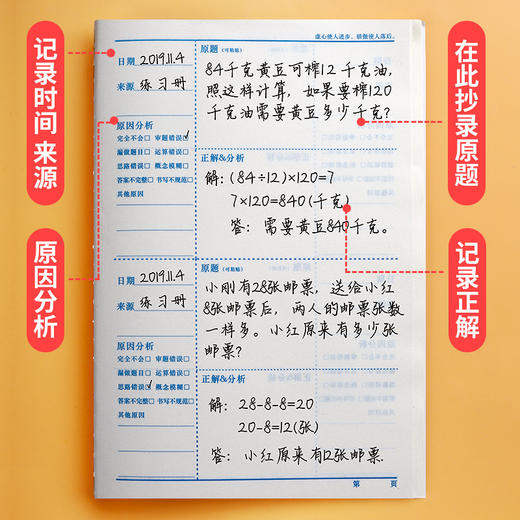 虚心使人进步，骄傲使人落后。
记录时间 来源
日期 2019.11.4
来源 练习册
原因分析
完全不会□ 审题错误☑
漏做题目□ 运算错误□
思路错误□ 概念模糊□
答案不完整□ 书写不规范□
其他原因
原题（可粘贴）
84千克黄豆可榨12千克油，
照这样计算，如果要榨120
千克油需要黄豆多少千克？
正解&分析
解：(84÷12)×120=7
7×120=840(千克)
答：需要黄豆840千克。
在此抄录原题
原因分析
日期 2019.11.4
来源 练习册
原因分析
完全不会□ 审题错误□
漏做题目□ 运算错误□
思路错误☑ 概念模糊□
答案不完整□ 书写不规范□
其他原因
原题（可粘贴）
小刚有28张邮票，送给小红
8张邮票后，两人的邮票张数
一样多。小红原来有多少张
邮票？
正解&分析
解：28-8-8=20
20-8=12(张)
答：小红原来有12张邮票
记录正解
第 页